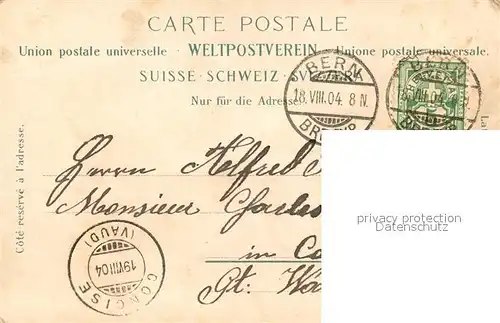 CARTE POSTALE.
Union postale universelle · WELTPOSTVEREIN · Unione postale universale.
SUISSE · SCHWEIZ · SVIZZERA
Nur für die Adresse
BERN
18.VIII.04. 8 N.
BERN
VIII.04
Côté réservé à l'adresse.
Herrn Alfred
Monsieur Charles
in
St.
privacy protection
Datenschutz
CONCISE
19 VIII 04
(VAUD)